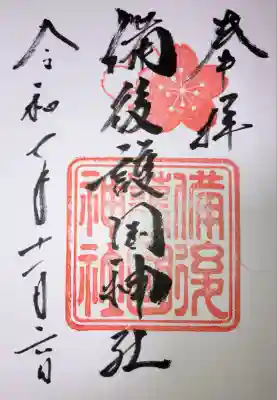 奉拝
備後護国神社
令和七年十一月六日
備後護国神社